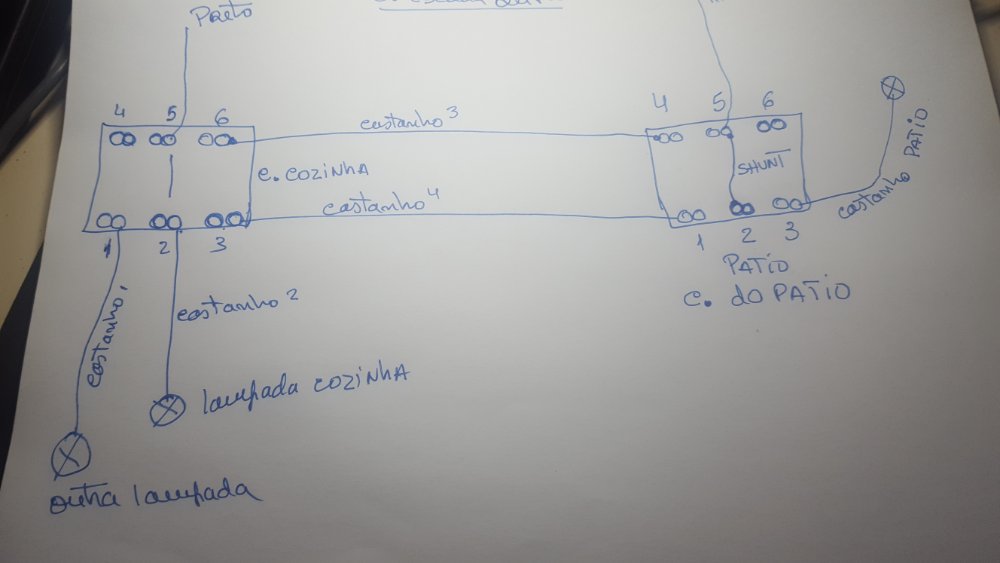 Preto
4 5 6
castanho 3
4 5 6
e. COZINHA
SHUNT
castanho 4
castanho PATIO
1 2 3
1 2 3
PATIO
c. do PATIO
castanho 1
castanho 2
lampada COZINHA
outra lampada